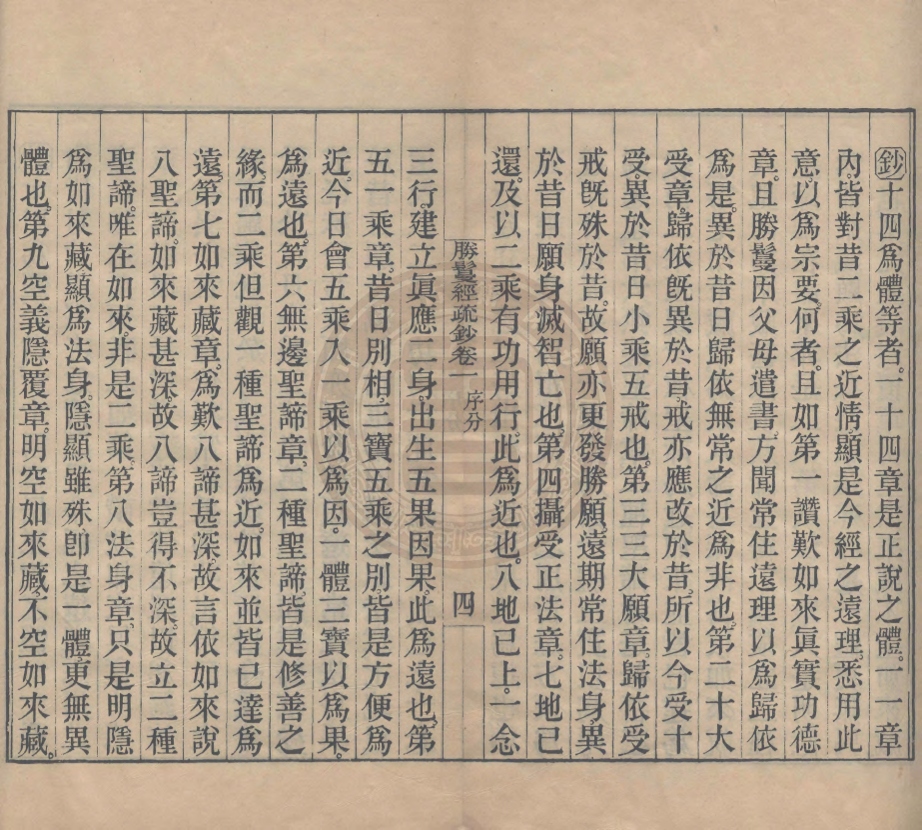 鈔十四爲體等者。一十四章是正說之體。一一章
內。皆對昔二乘之近情。顯是今經之遠理。悉用此
意。以爲宗要。何者。且如第一讚歎如來眞實功德
章。且勝鬘因父母遣書。方聞常住遠理以爲歸依
爲是。異於昔日歸依無常之近爲非也。第二十大
受章。歸依旣異於昔。戒亦應改於昔。所以今受十
受。異於昔日小乘五戒也。第三三大願章。歸依受
戒旣殊於昔。故願亦更發勝願。遠期常住法身。異
於昔日願身滅智亡也。第四攝受正法章。七地已
還。及以二乘有功用行。此爲近也。八地已上。一念
勝鬘經疏鈔卷一 序分 四
三行。建立眞應二身。出生五果因果。此爲遠也。第
五一乘章。昔日別相。三寶五乘之別。皆是方便爲
近。今日會五乘入一乘以爲因。一體三寶以爲果。
爲遠也。第六無邊聖諦章。二種聖諦。皆是修善之
緣。而二乘但觀一種聖諦爲近。如來並皆已達爲
遠。第七如來藏章。爲歎八諦甚深。故言依如來說
八聖諦。如來藏甚深。故八諦豈得不深。故立二種
聖諦。唯在如來非是二乘。第八法身章。只是明隱
爲如來藏。顯爲法身。隱顯雖殊。卽是一體。更無異
體也。第九空義隱覆章。明空如來藏。不空如來藏。